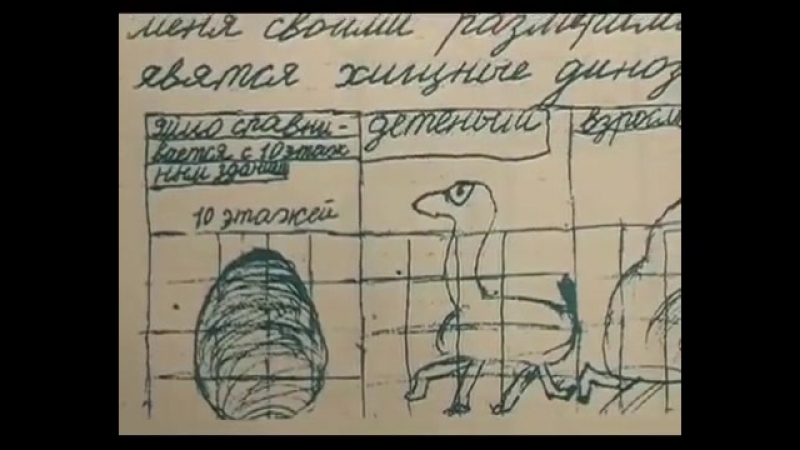 меня своими размерами
явятся хищные диноз
яйцо сравни-
вается с 10 этаж
ным зданием
10 этажей
детеныш
взросл